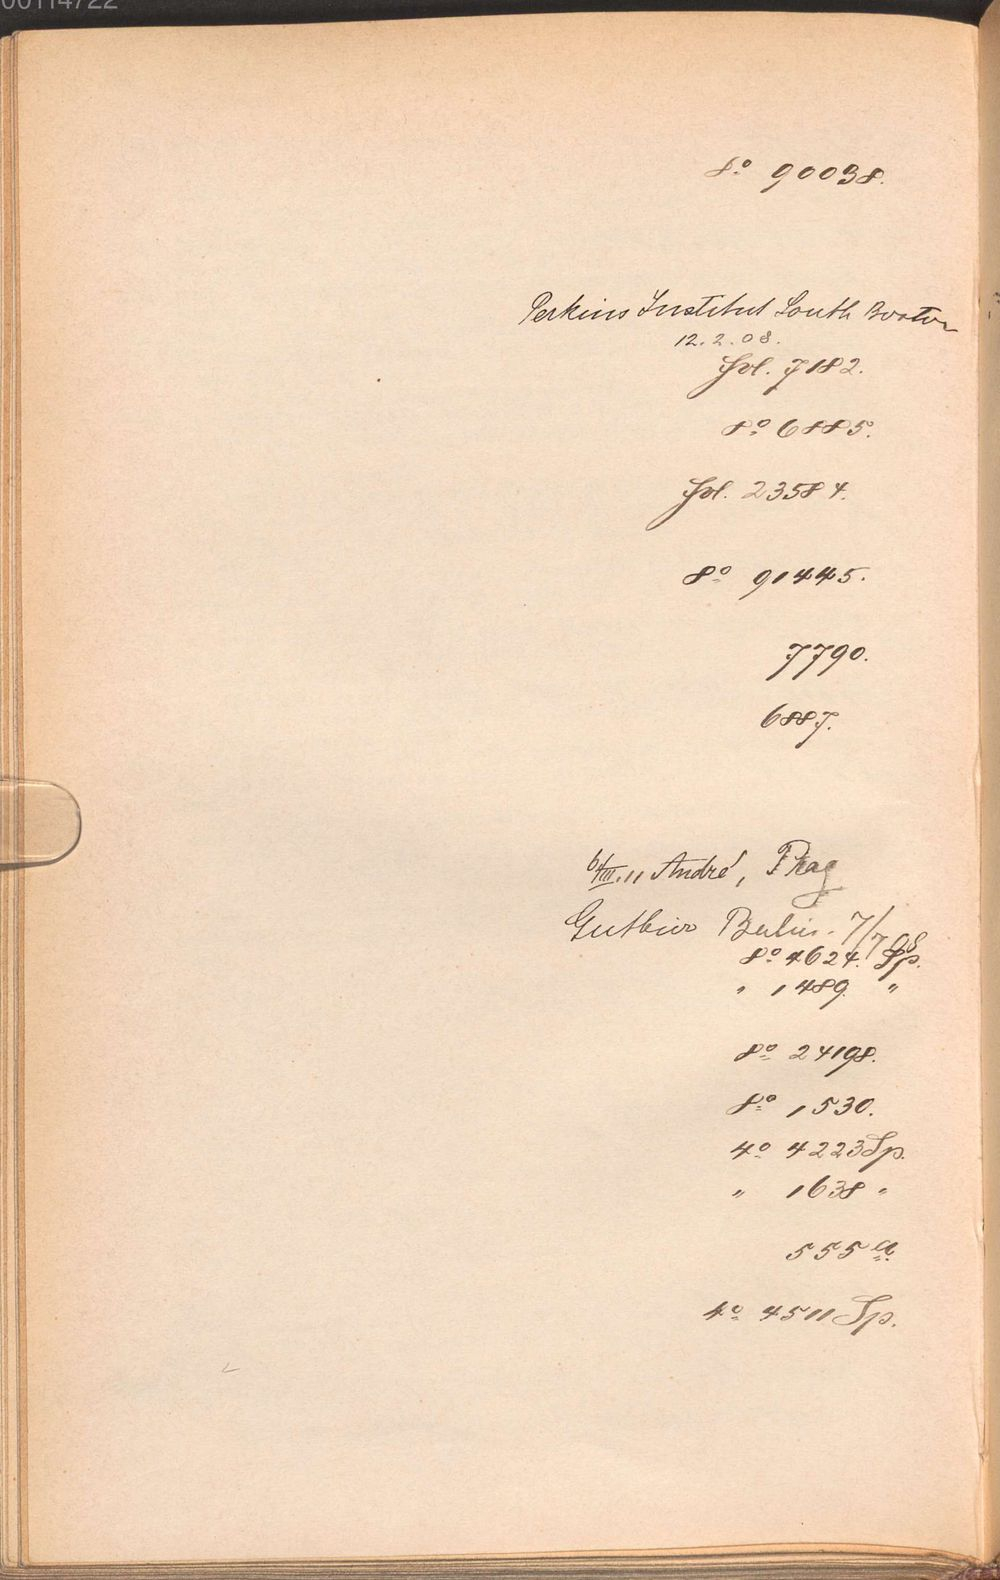 00114722
8º 90038.
Perkins Institut South Boston
12.2.08.
fol. 7182.
8º 6885.
fol. 23584.
8º 91445.
7790.
6887.
6/III.11 André, Prag
Gutbier Berlin. 7/7 08
8º 4624. Sp.
" 1489. "
8º 24198.
8º 1530.
4º 4223 Sp.
" 1638 "
555 a.
4º 4511 Sp.